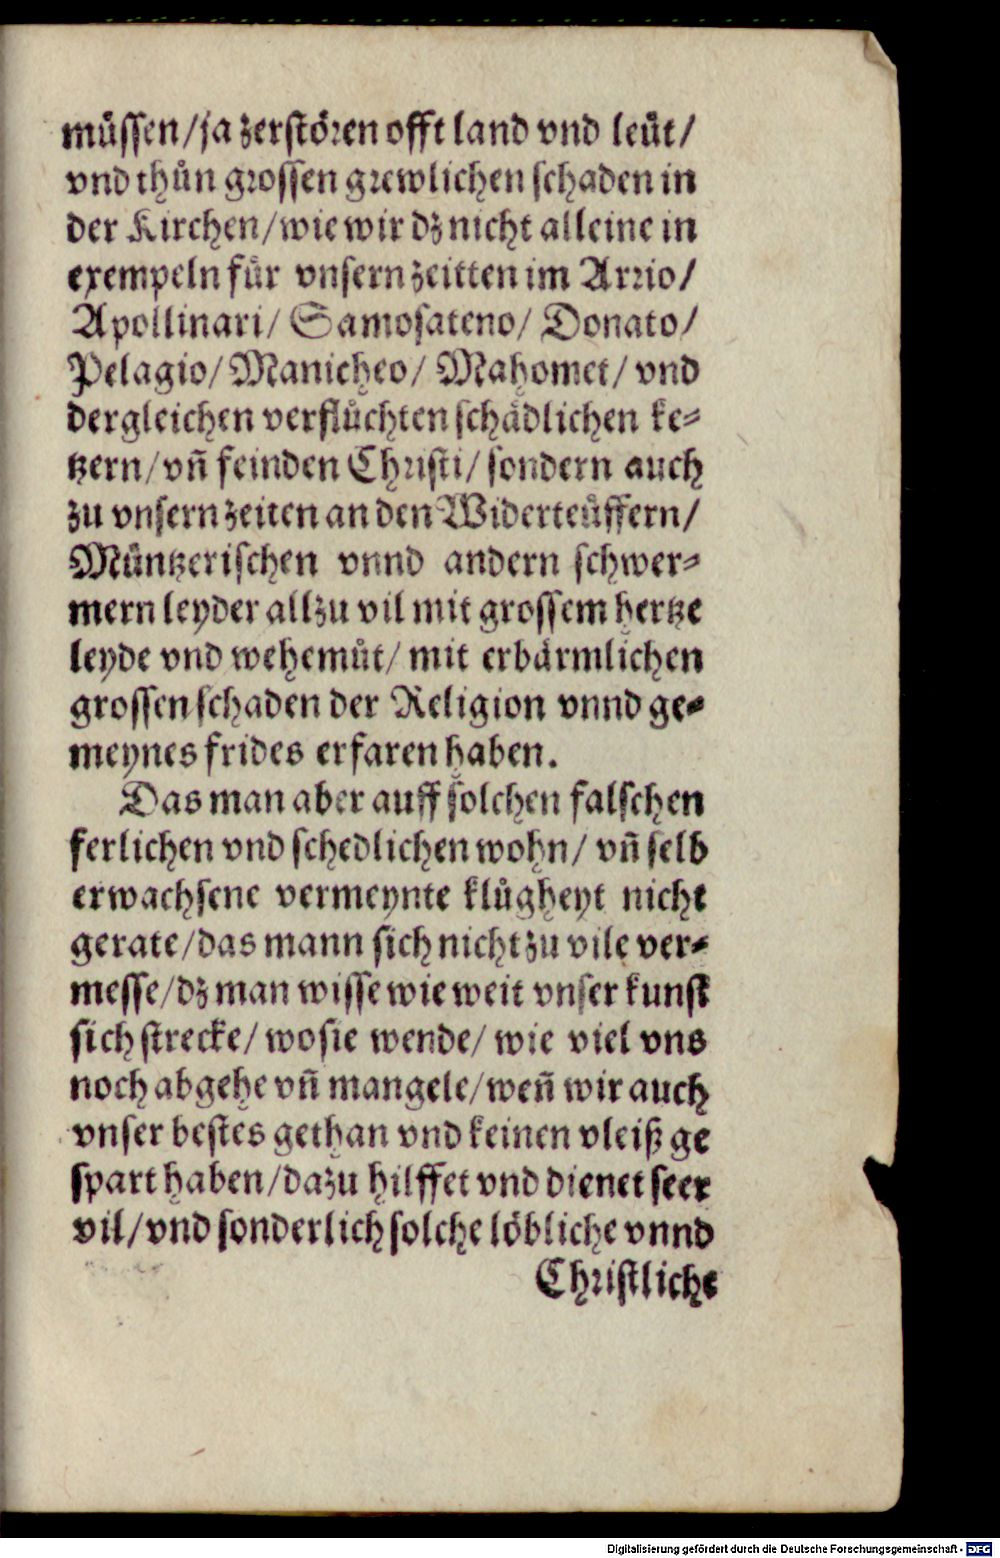 müssen/ja zerstören offt land vnd leüt/
vnd thůn grossen grewlichen schaden in
der Kirchen/wie wir dz nicht alleine in
exempeln für vnsern zeitten im Arrio/
Apollinari/ Samosateno/ Donato/
Pelagio/ Manicheo/ Mahomet/ vnd
dergleichen verflůchten schädlichen ke⸗
tzern/vñ feinden Christi/ sondern auch
zu vnsern zeiten an den Widerteüffern/
Müntzerischen vnnd andern schwer⸗
mern leyder allzu vil mit grossem hertze
leyde vnd wehemůt/ mit erbärmlichen
grossen schaden der Religion vnnd ge⸗
meynes frides erfaren haben.
Das man aber auff solchen falschen
ferlichen vnd schedlichen wohn/ vñ selb
erwachsene vermeynte klůgheyt nicht
gerate/das mann sich nicht zu vile ver⸗
messe/dz man wisse wie weit vnser kunst
sich strecke/ wo sie wende/ wie viel vns
noch abgehe vñ mangele/weñ wir auch
vnser bestes gethan vnd keinen vleiß ge
spart haben/dazu hilffet vnd dienet seer
vil/vnd sonderlich solche löbliche vnnd
Christliche
Digitalisierung gefördert durch die Deutsche Forschungsgemeinschaft - DFG